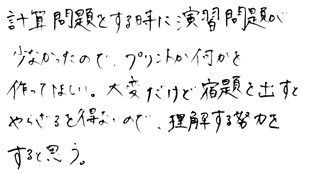 計算問題をする時に演習問題が
少なかったので、プリントか何かを
作ってほしい。大変だけど宿題を出すと
やらざるを得ないので、理解する努力を
すると思う。